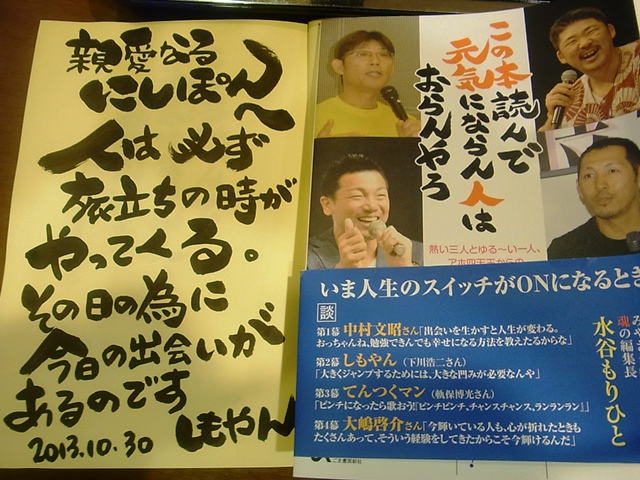 親愛なる
にしぽん へ
人は必ず
旅立ちの時が
やってくる。
その日の為に
今日の出会いが
あるのです
しもやん
2013.10.30
この本読んで
元気にならん人は
おらんやろ
熱い三人とゆる～い一人、
いま人生のスイッチがONになるとき
談
第1幕 中村文昭さん「出会いを生かすと人生が変わる。
おっちゃんね、勉強できんでも幸せになる方法を教えたるからな」
第2幕 しもやん（下川浩二さん）
「大きくジャンプするためには、大きな凹みが必要なんや」
第3幕 てんつくマン（軌保博光さん）
「ピンチになったら歌おう!『ピンチピンチ、チャンスチャンス、ランランラン』」
第4幕 大嶋啓介さん「今輝いている人も、心が折れたときも
たくさんあって、そういう経験をしてきたからこそ今輝けるんだ」
魂の編集長
水谷もりひと
ごま書房新社